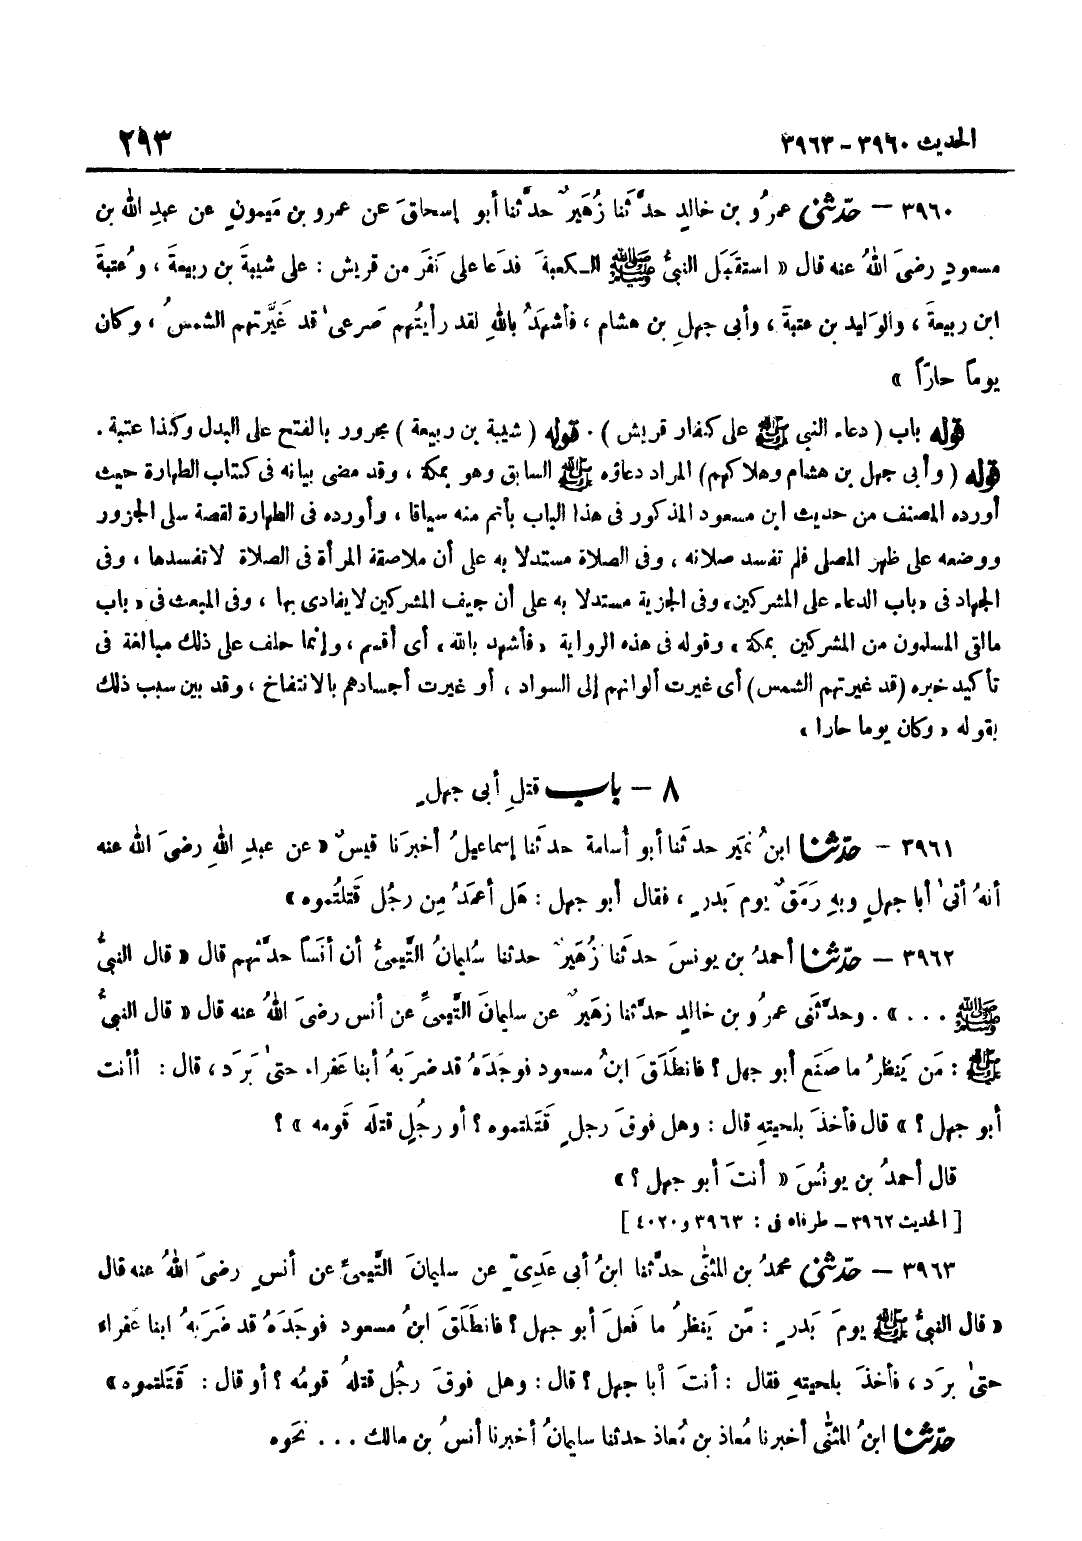 الحديث ٣٩٦٠ - ٣٩٦٣ ٢٩٣
٣٩٦٠ - حدّثنى عمرُو بن خالدٍ حدَّثَنا زُهَيرٌ حدَّثنا أبو إسحاقَ عن عمرو بن مَيمونٍ عن عبدِ الله بن
مسعودٍ رضىَ اللهُ عنه قال « استقبَل النبىُّ ﷺ الكعبةَ فدَعا على نَفَر من قريش : على شيبةَ بن ربيعةَ ، وعُتبةَ
ابن ربيعةَ ، والوَليد بن عتبةَ ، وأبى جهلِ بن هشام ، فأشهَدُ باللهِ لقد رأيتُهم صَرعى قد غَيَّرتهم الشمسُ ، وكان
يوماً حارّاً »
قوله باب ( دعاء النبى ﷺ على كفار قريش ) . قوله ( شيبة بن ربيعة ) مجرور بالفتح على البدل وكذا عتبة .
قوله ( وأبى جهل بن هشام وهلاكهم) المراد دعاؤه ﷺ السابق وهو بمكة ، وقد مضى بيانه فى كتاب الطهارة حيث
أورده المصنف من حديث ابن مسعود المذكور فى هذا الباب بأتم منه سياقا ، وأورده فى الطهارة لقصة سلى الجزور
ووضعه على ظهر المصلى فلم تفسد صلاته ، وفى الصلاة مستدلا به على أن ملاصقة المرأة فى الصلاة لا تفسدها ، وفى
الجهاد فى «باب الدعاء على المشركين» وفى الجزية مستدلا به على أن جيف المشركين لا يفادى بها ، وفى المبعث فى « باب
مالقى المسلمون من المشركين بمكة » وقوله فى هذه الرواية « فأشهد بالله » أى أقسم ، وإنما حلف على ذلك مبالغة فى
تأكيد خبره (قد غيرتهم الشمس) أى غيرت ألوانهم إلى السواد ، أو غيرت أجسادهم بالانتفاخ ، وقد بين سبب ذلك
بقوله « وكان يوما حارا »
٨ - باب قتلِ أبى جهلٍ
٣٩٦١ - حدّثنا ابنُ نمَير حدثَنا أبو أُسامة حدثَنا إسماعيلُ أخبرَنا قيسٌ « عن عبدِ اللهِ رضىَ الله عنه
أنهُ أتىٰ أبا جهلٍ وبهِ رَمَقٌ يوم بَدرٍ ، فقال أبو جهل : هَل أعمَدُ مِن رجُل قَتلتُموه »
٣٩٦٢ - حدّثنا أحمدُ بن يونسَ حدثَنا زُهَيرٌ حدثنا سُليمانُ التَّيمىُّ أن أنَساً حدَّثهم قال « قال النبىُّ
ﷺ ... » . وحدَّثنَى عمرُو بن خالدٍ حدَّثنا زهَيرٌ عن سليمانَ التَّيمىِّ عن أنس رضىَ اللهُ عنه قال « قال النبىُّ
ﷺ : مَن يَنظرُ ما صَنَع أبو جهل ؟ فانطَلَقَ ابنُ مسعود فوجَدَهُ قد ضرَبهُ أبنا عَفراء حتىٰ بَرَد ، قال : أأنت
أبو جهل ؟ » قال فأخذَ بلحيتهِ قال : وهل فوقَ رجلٍ قَتَلتموه ؟ أو رجُلٍ قتلَه قَومه » ؟
قال أحمدُ بن يونُسَ « أنتَ أبو جهل ؟ »
[ الحديث ٣٩٦٢ - طرفاه فى : ٣٩٦٣ و ٤٠٢٠ ]
٣٩٦٣ - حدّثنى محمدُ بن المثنّٰى حدَّثنا ابنُ أبى عَدِىّ عن سليمانَ التَّيمىِّ عن أنسٍ رضىَ اللهُ عنه قال
« قال النبىُّ ﷺ يومَ بَدرٍ : مّن يَنظرُ ما فعلَ أبو جهل ؟ فانطَلَقَ ابنُ مسعود فوجَدَهُ قد ضَرَبهُ ابنا عَفراء
حتىٰ برَد ، فأخذَ بلحيتهِ فقال : أنتَ أبا جهل ؟ قال : وهل فوقَ رجُل قتلهُ قومُه ؟ أو قال : قَتَلتموه »
حدّثنا ابنُ المثنّٰى أخبرنا مُعاذ بن مُعاذ حدثنا سليمانُ أخبرنا أنسُ بن مالك ... نحَوه